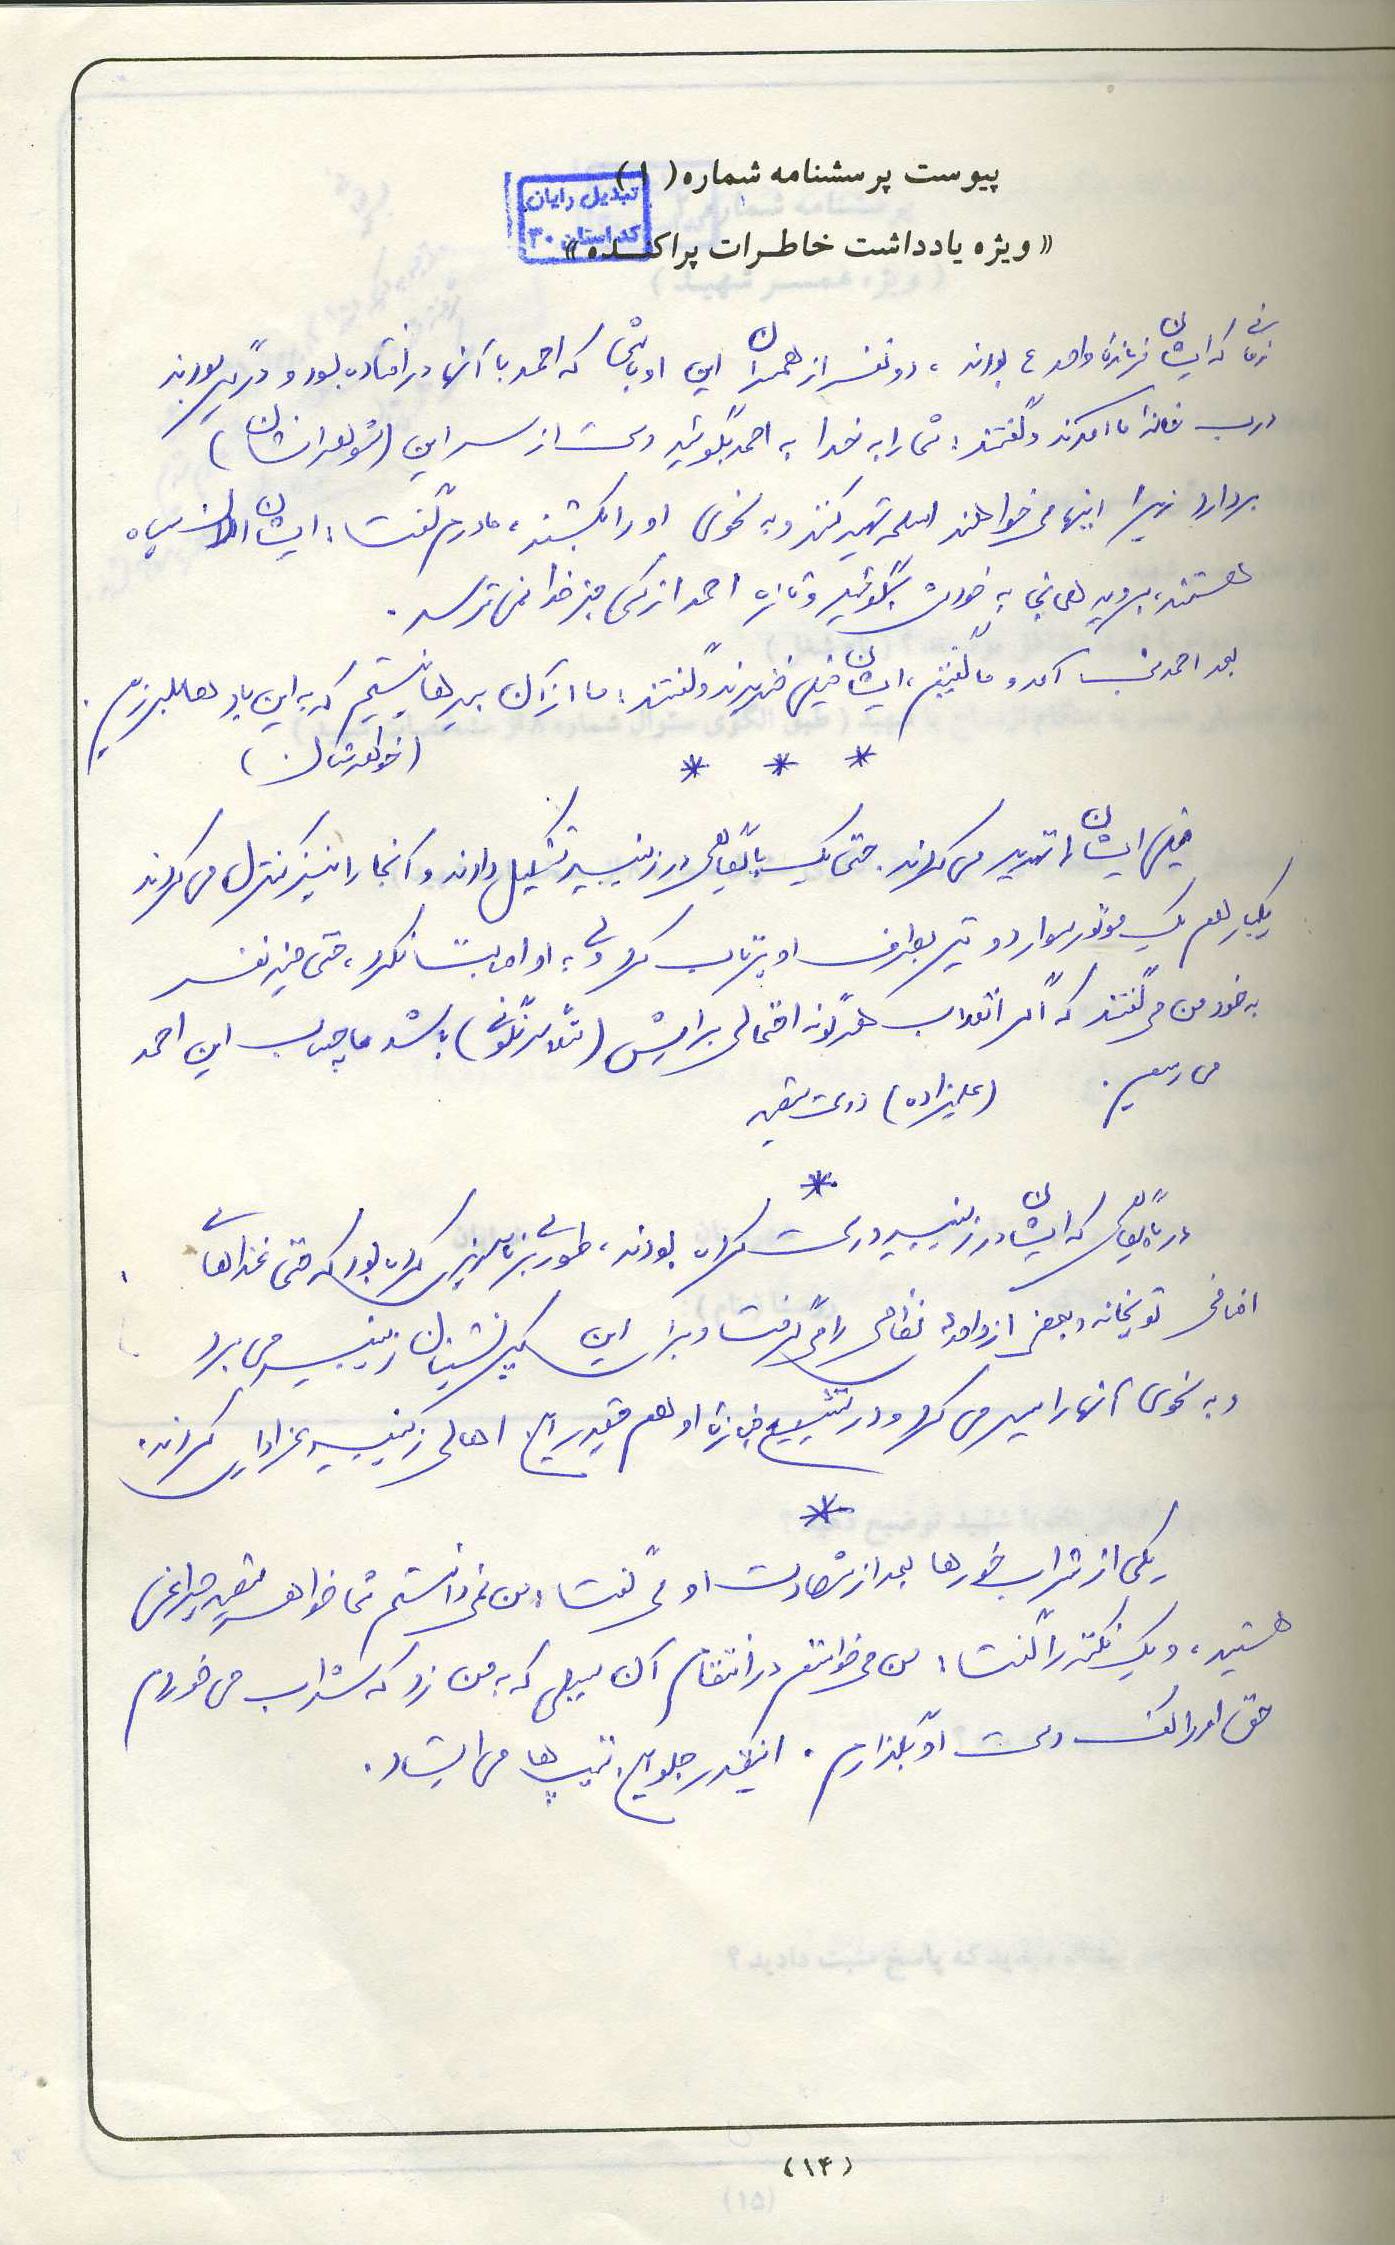 پیوست پرسشنامه شماره (۱)
تبدیل رایان
کد استان ۳۰
«ویژه یادداشت خاطرات پراکنده»
زمانی که ایشان فرمانده واحد ع بودند، دو نفر از همسران این اوباشها که احمد با آنها در افتاده بود و درگیر بودند
درب خانه ما آمدند و گفتند: شما را به خدا به احمد بگوئید دست از سر این (شوهرانشان)
بردارد زیرا اینها می‌خواهند اسلحه تهیه کنند و به نحوی او را بکشند، مادرم گفت: ایشان الان سپاه
هستند، بروید همانجا به خودش بگوئید و تازه احمد از کسی جز خدا نمی‌ترسد.
بعد احمد شب آمد و ما گفتیم، ایشان خیلی خندیدند و گفتند: ما از آن بیدها نیستیم که به این بادها بلرزیم.
(خواهرشان)
* * *
خیلی ایشان را تهدید می‌کردند. حتی یک پایگاهی در زینبیه تشکیل دادند و آنجا را نیز کنترل می‌کردند
یکبار هم یک موتور سوار دو تیر بطرف او پرتاب کرد ولی به او اصابت نکرد، حتی چند نفر
به خود من می‌گفتند که اگر انقلاب هرگونه احتمالی برایش (مثلا سرنگونی) باشد ما حساب این احمد
می‌رسیم. (علیزاده) دوست شهید
*
در پایگاهی که ایشان در زینبیه درست کرده بودند، طوری برنامه‌ریزی کرده بود که حتی غذاهای
اضافی توپخانه و بعضی از واحدهای نظامی را می‌گرفت و برای این کپرنشینان زینبیه می‌برد
و به نحوی آنها را سیر می‌کرد و در تشییع جنازه او هم چقدر این اهالی زینبیه عزاداری کردند.
*
یکی از شراب‌خورها بعد از شهادت او می‌گفت: من نمی‌دانستم شما خواهر شهید چراغی
هستید، و یک نکته را گفت: من می‌خواستم در انتقام آن سیلی که به من زد که شراب می‌خوردم
حق او را کف دست او بگذارم. اینقدر جلو این تیپ‌ها می‌ایستاد.
(۱۴)